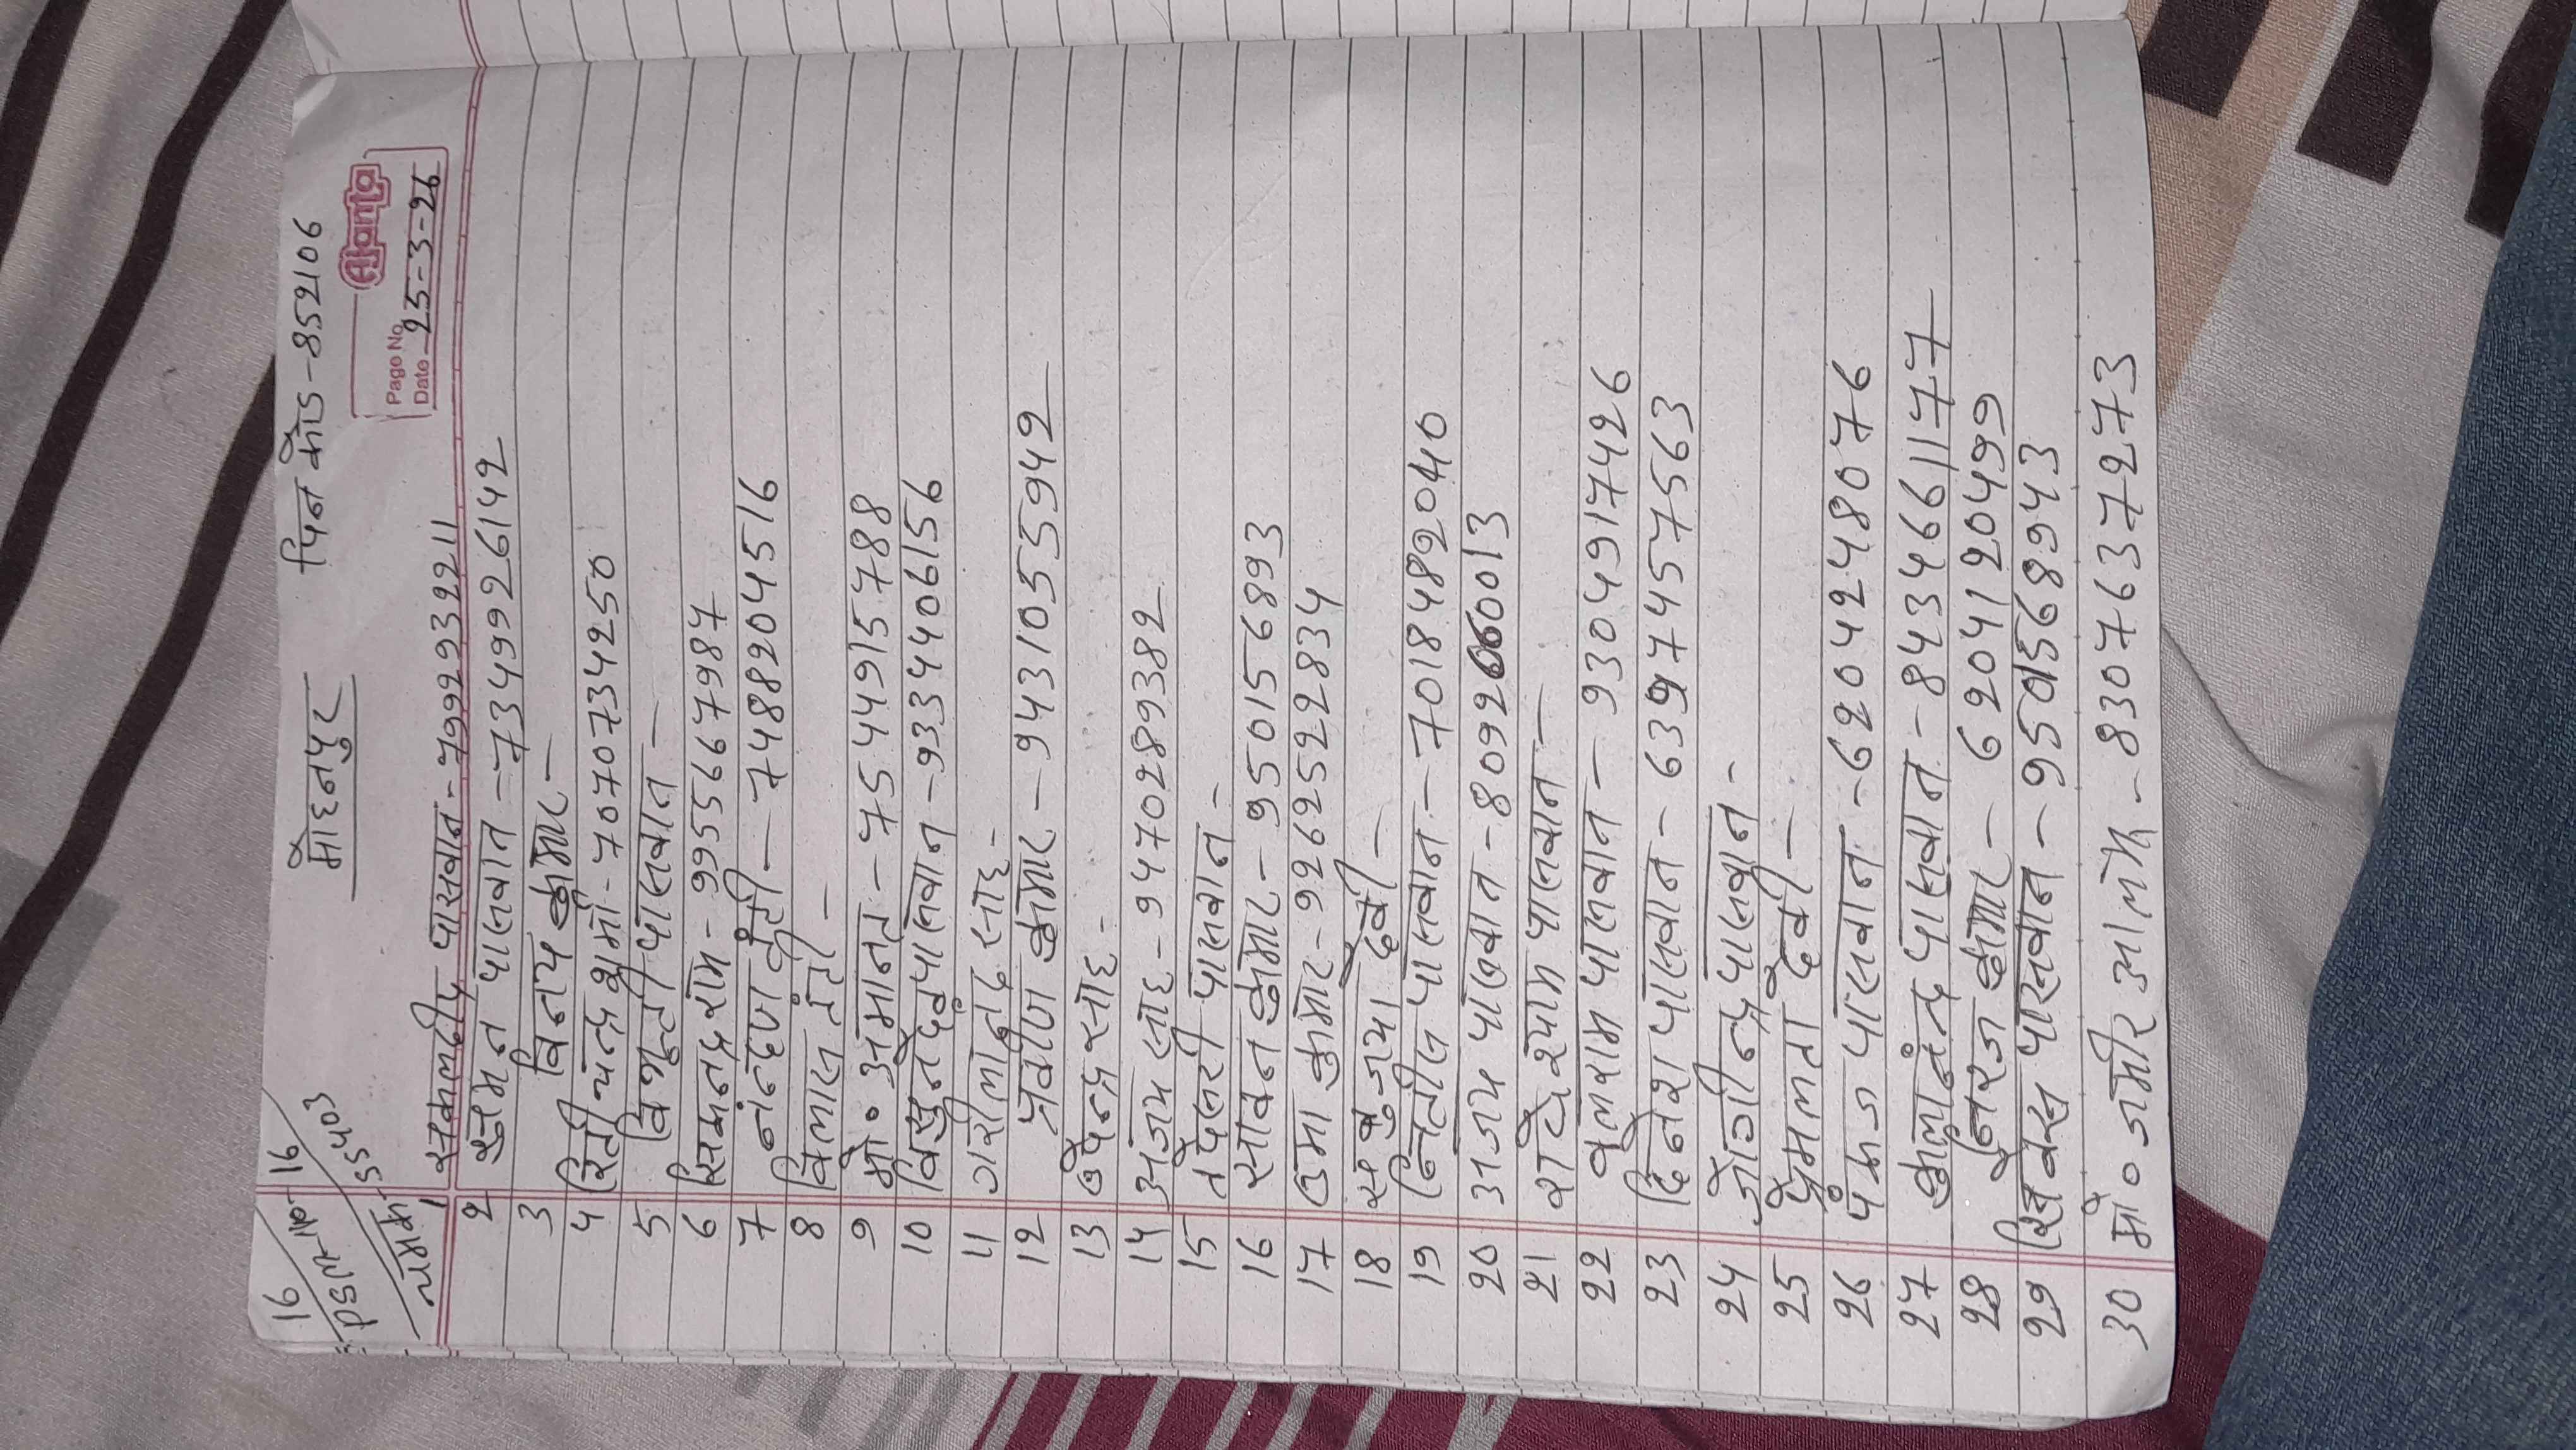 16 16
PSM-NO-
55403
मोहनपुर पिन कोड-852106
Ajanta
Page No.
Date 25-3-26
क्रमांक
1 सकलदीप पासवान-7992932211
2 सुमन पासवान-7349926142
3 विनय कुमार-
4 चन्द्र शर्मा-7070734250
5 विभूती पासवान-
6 राम-9955667987
7 -7488204516
8 विलास
9 मो० अमानत-7544915788
10 पासवान-9334406156
11 साह-
12 प्रवीण कुमार-9431055942
13 उपेन्द्र साह-
14 अजय साह-9470289382
15 पासवान-
16 सावन कुमार-9501556893
17 उमा कुमार-9262522834
18 देवी-
19 पासवान-7018482040
20 अजय पासवान-8092660013
21 राधेश्याम पासवान-
22 पासवान-9304917426
23 दिनेश पासवान-6397457563
24 जोगीन्द्र पासवान-
25 प्रेमलता देवी-
26 पंकज पासवान-6204248076
27 पासवान-8434661177
28 निरज कुमार-6204120499
29 पासवान-9501568943
30 मो० जमीर आलम-8307637273